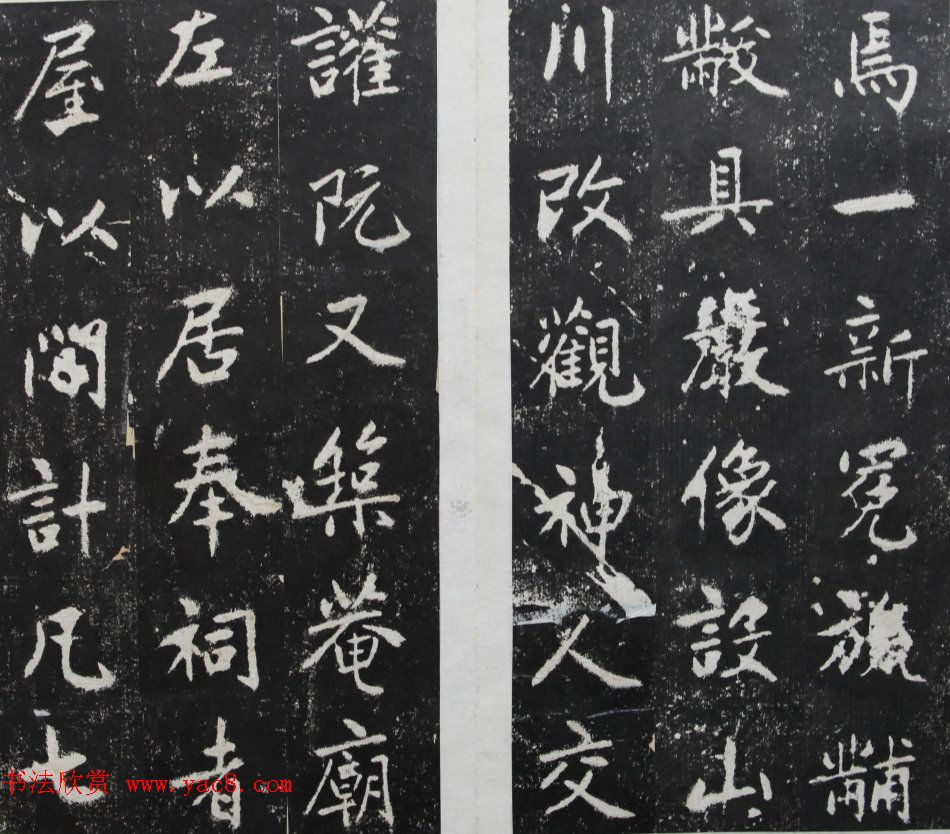 焉一新冕旒黼
黻具嚴像設山
川改觀神人交
讙既又築菴廟
左以居奉祠者
屋以間計凡七
书法欣赏 www.yac8.com